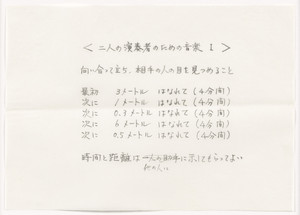 < 二人の演奏者のための音楽 I >
向い合って立ち、相手の人の目を見つめること
最初 3メートル はなれて (4分間)
次に 1メートル はなれて (4分間)
次に 0.3メートル はなれて (4分間)
次に 6メートル はなれて (4分間)
次に 0.5メートル はなれて (4分間)
時間と距離は一人の助手に示してもらってよい